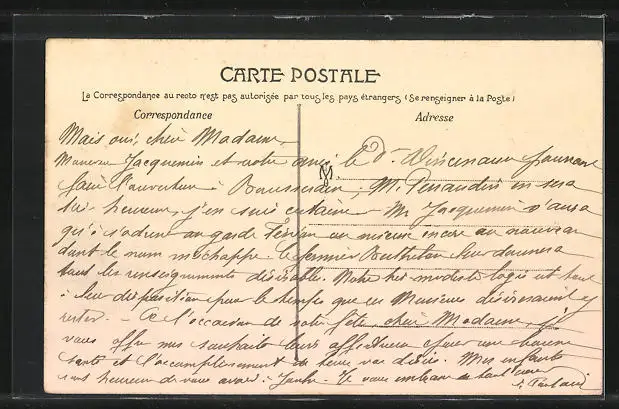 CARTE POSTALE
La Correspondance au recto n'est pas autorisée par tous les pays étrangers (Se renseigner à la Poste)
Correspondance
Adresse
M
Mais oui, chère Madame,
Jacquemin et votre ami, le Dr pourront
faire l'ouverture à M. en sera
très heureux, j'en suis certaine. Mr Jacquemin n'aura
qu'à s'adresser au garde ou mieux encore au nouveau
dont le nom m'échappe. Le fermier leur donnera
tous les renseignements désirables. Notre très modeste logis est tout
à leur disposition pour le temps que ces Messieurs désireraient y
rester. - A l'occasion de votre fête, chère Madame, je
vous offre mes souhaits bien affectueux pour une bonne
santé et l'accomplissement de tous vos désirs. Mes enfants
sont heureux de vous avoir. Je vous embrasse de tout cœur